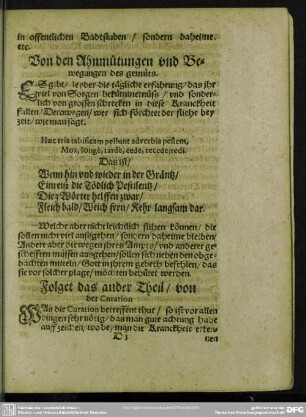 in offentlichen Badtstuben / sondern daheime /
etc.
Von den Ahnmütungen vnd Be-
wegungen des gemüts.
ES gibt / leyder die tägliche erfahrung / das jhr
viel von Sorgen bekümmernüß / vnd sonder-
lich von grossen schrecken in diese Kranckheit
fallen / Derowegen / wer sich förchtet der fliehe bey
zeyt / wie man sagt.
Hæc tria tabificam pellunt adverbia pestem,
Mox, longè, tardè, cede, recede, redi.
Das ist /
Wenn hin vnd wieder in der Gräntz /
Einreist die Tödlich Pestilentz /
Die 3 Wörter helffen zwar /
Fleich bald / Weich fern / Kehr langsam dar.
Welche aber nicht leichtlich fliehen können / die
sollen nicht viel außgehen / sondern daheime bleiben /
Andere aber die wegen jhres Ampts / vnd anderer ge-
schefften müssen außgehen / sollen sich neben den obge-
dachten mitteln / Gott in jhrem gebeth befehlen / das
sie vor solcher plage / möchten behütet werden.
Folget das ander Theil / von
der Curation
WAs die Curation betreffent thut / so ist vor allen
dingen sehr nötig / das man gute achtung habe
auff zeichen, wobey man die Kranckheit erken-
nen